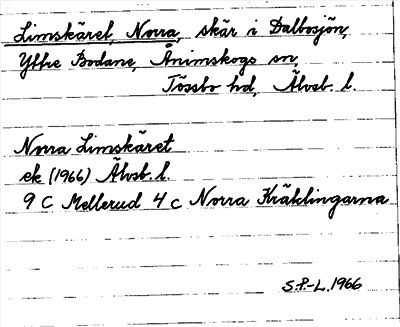 Limskäret, Norra, skär i Dalbosjön,
Yttre Bodane, Ånimskogs sn,
Tössbo hd, Älvsb. l.
Norra Limskäret
ek (1966) Älvsb. l.
9 C Mellerud 4 c Norra Kräklingarna
S.P.-L. 1966